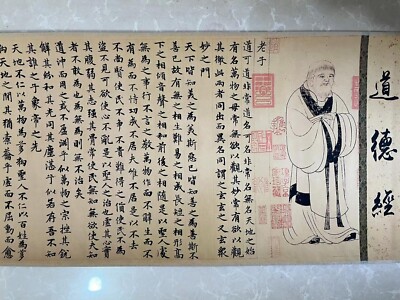 道德經
老子
道可道非常道名可名非常名無名天地之始
有名萬物之母常無欲以觀其妙常有欲以觀
其徼此兩者同出而異名同謂之玄玄之又玄衆
妙之門
天下皆知美之為美斯惡已皆知善之為善斯不
善已故有無之相生難易之相成長短之相形高
下之相傾音聲之相和前後之相隨是以聖人處
無為之事行不言之教萬物作而不辭生而不
有為而不恃功成不居夫唯不居是以不去
不尚賢使民不爭不貴難得之貨使民不為
盜不見可欲使心不亂是以聖人之治也虛其心實
其腹弱其志强其骨常使民無知無欲使夫知
者不敢為也為無為則無不治矣
道沖而用之或不盈淵乎似萬物之宗挫其銳
解其紛和其光同其塵湛乎似若存吾不知
其誰之子象帝之先
天地不仁以萬物為芻狗聖人不仁以百姓為芻
狗天地之間其猶橐籥乎虛而不屈動而愈